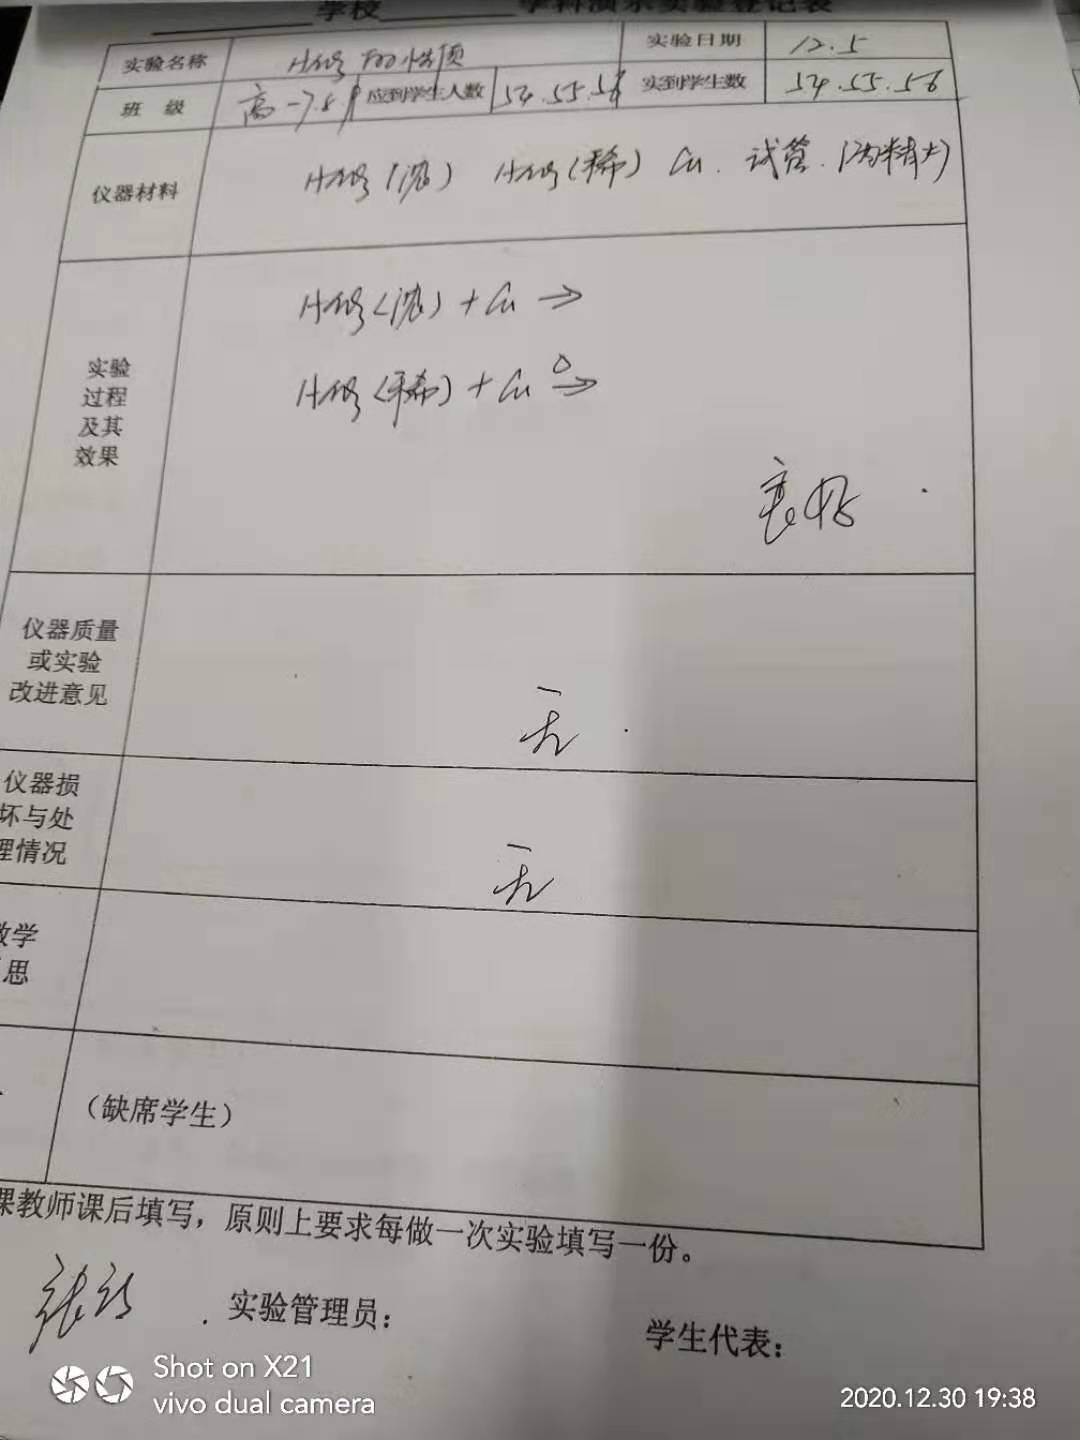 学校 学科演示实验登记表
实验名称 HNO3 的性质 实验日期 12.5
班 级 高一7.8.9 应到学生人数 54.55.56 实到学生数 54.55.56
仪器材料 HNO3(浓) HNO3(稀) Cu. 试管. (酒精灯)
实验
过程
及其
效果
HNO3(浓) + Cu →
HNO3(稀) + Cu △→
良好.
仪器质量
或实验
改进意见
无.
仪器损
坏与处
理情况
无
教学
思
(缺席学生)
课教师课后填写，原则上要求每做一次实验填写一份。
实验管理员： 学生代表：
Shot on X21
vivo dual camera
2020.12.30 19:38